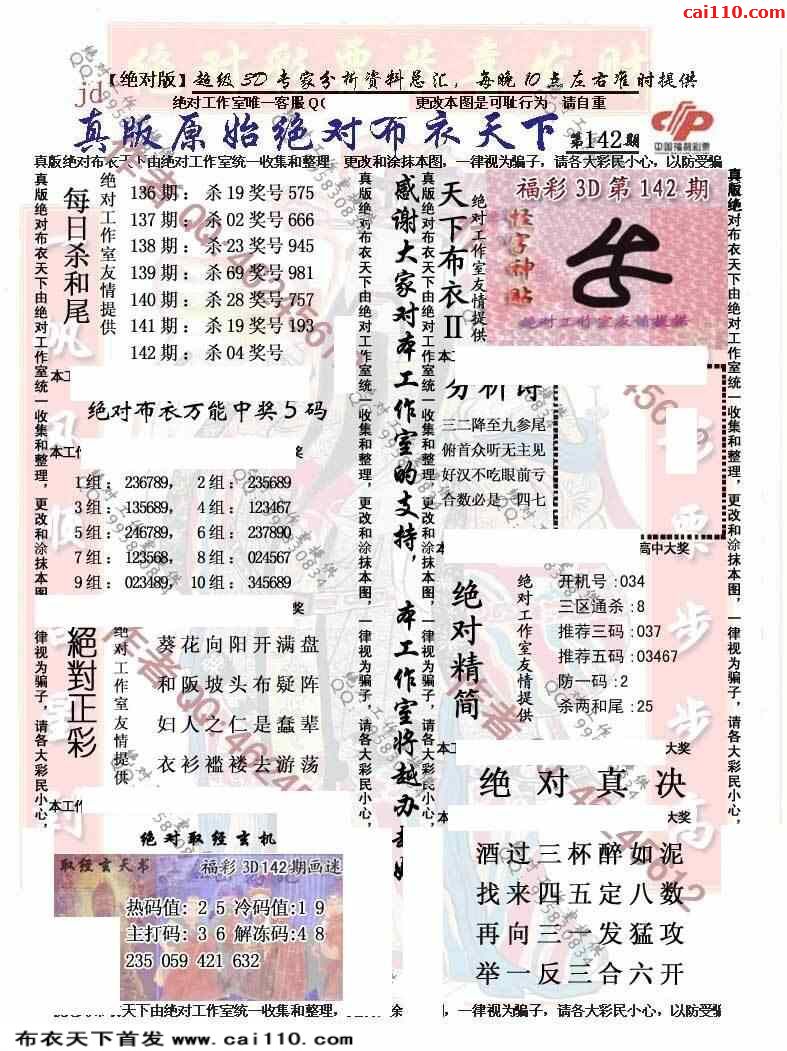 cai110.com
【绝对版】超级3D专家分析资料总汇，每晚10点左右准时提供
jd
绝对工作室唯一客服Q(
更改本图是可耻行为 请自重
真版原始绝对布衣天下 第142期
中国福利彩票
真版绝对布衣天下由绝对工作室统一收集和整理 更改和涂抹本图，一律视为骗子，请各大彩民小心，以防受骗
真版绝对布衣天下由绝对工作室统一收集和整理，更改和涂抹本图，一律视为骗子，请各大彩民小心，
每日杀和尾
绝对工作室友情提供
136期：杀19奖号575
137期：杀02奖号666
138期：杀23奖号945
139期：杀69奖号981
140期：杀28奖号757
141期：杀19奖号193
142期：杀04奖号
绝对布衣万能中奖5码
1组：236789， 2组：235689
3组：135689， 4组：123467
5组：246789， 6组：237890
7组：123568， 8组：024567
9组：023489， 10组：345689
絕對正彩
绝对工作室友情提供
葵花向阳开满盘
和阪坡头布疑阵
妇人之仁是蠢辈
衣衫褴褛去游荡
绝对取经玄机
取经玄天书
福彩3D142期画迷
热码值: 2 5 冷码值:1 9
主打码: 3 6 解冻码:4 8
235 059 421 632
真版绝对布衣天下由绝对工作室统一收集和整理，更改和涂抹本图，一律视为骗子，请各大彩民小心，
感谢大家对本工作室的支持，本工作室将越办
真版绝对布衣天下由绝对工作室统一收集和整理，更改和涂抹本图，一律视为骗子，请各大彩民小心，
天下布衣II
绝对工作室友情提供
福彩3D第142期
怪字神贴
绝对工作室友情提供
分析诗
三二降至九参尾
俯首众听无主见
好汉不吃眼前亏
合数必是一四七
高中大奖
绝对精简
绝对工作室友情提供
开机号:034
三区通杀:8
推荐三码:037
推荐五码:03467
防一码:2
杀两和尾:25
大奖
绝对真决
大奖
酒过三杯醉如泥
找来四五定八数
再向三一发猛攻
举一反三合六开
真版绝对布衣天下由绝对工作室统一收集和整理，更改和涂抹本图，一律视为骗子，请各大彩民小心，
衣天下由绝对工作室统一收集和整理，
一律视为骗子，请各大彩民小心，以防受骗
布衣天下首发 www.cai110.com